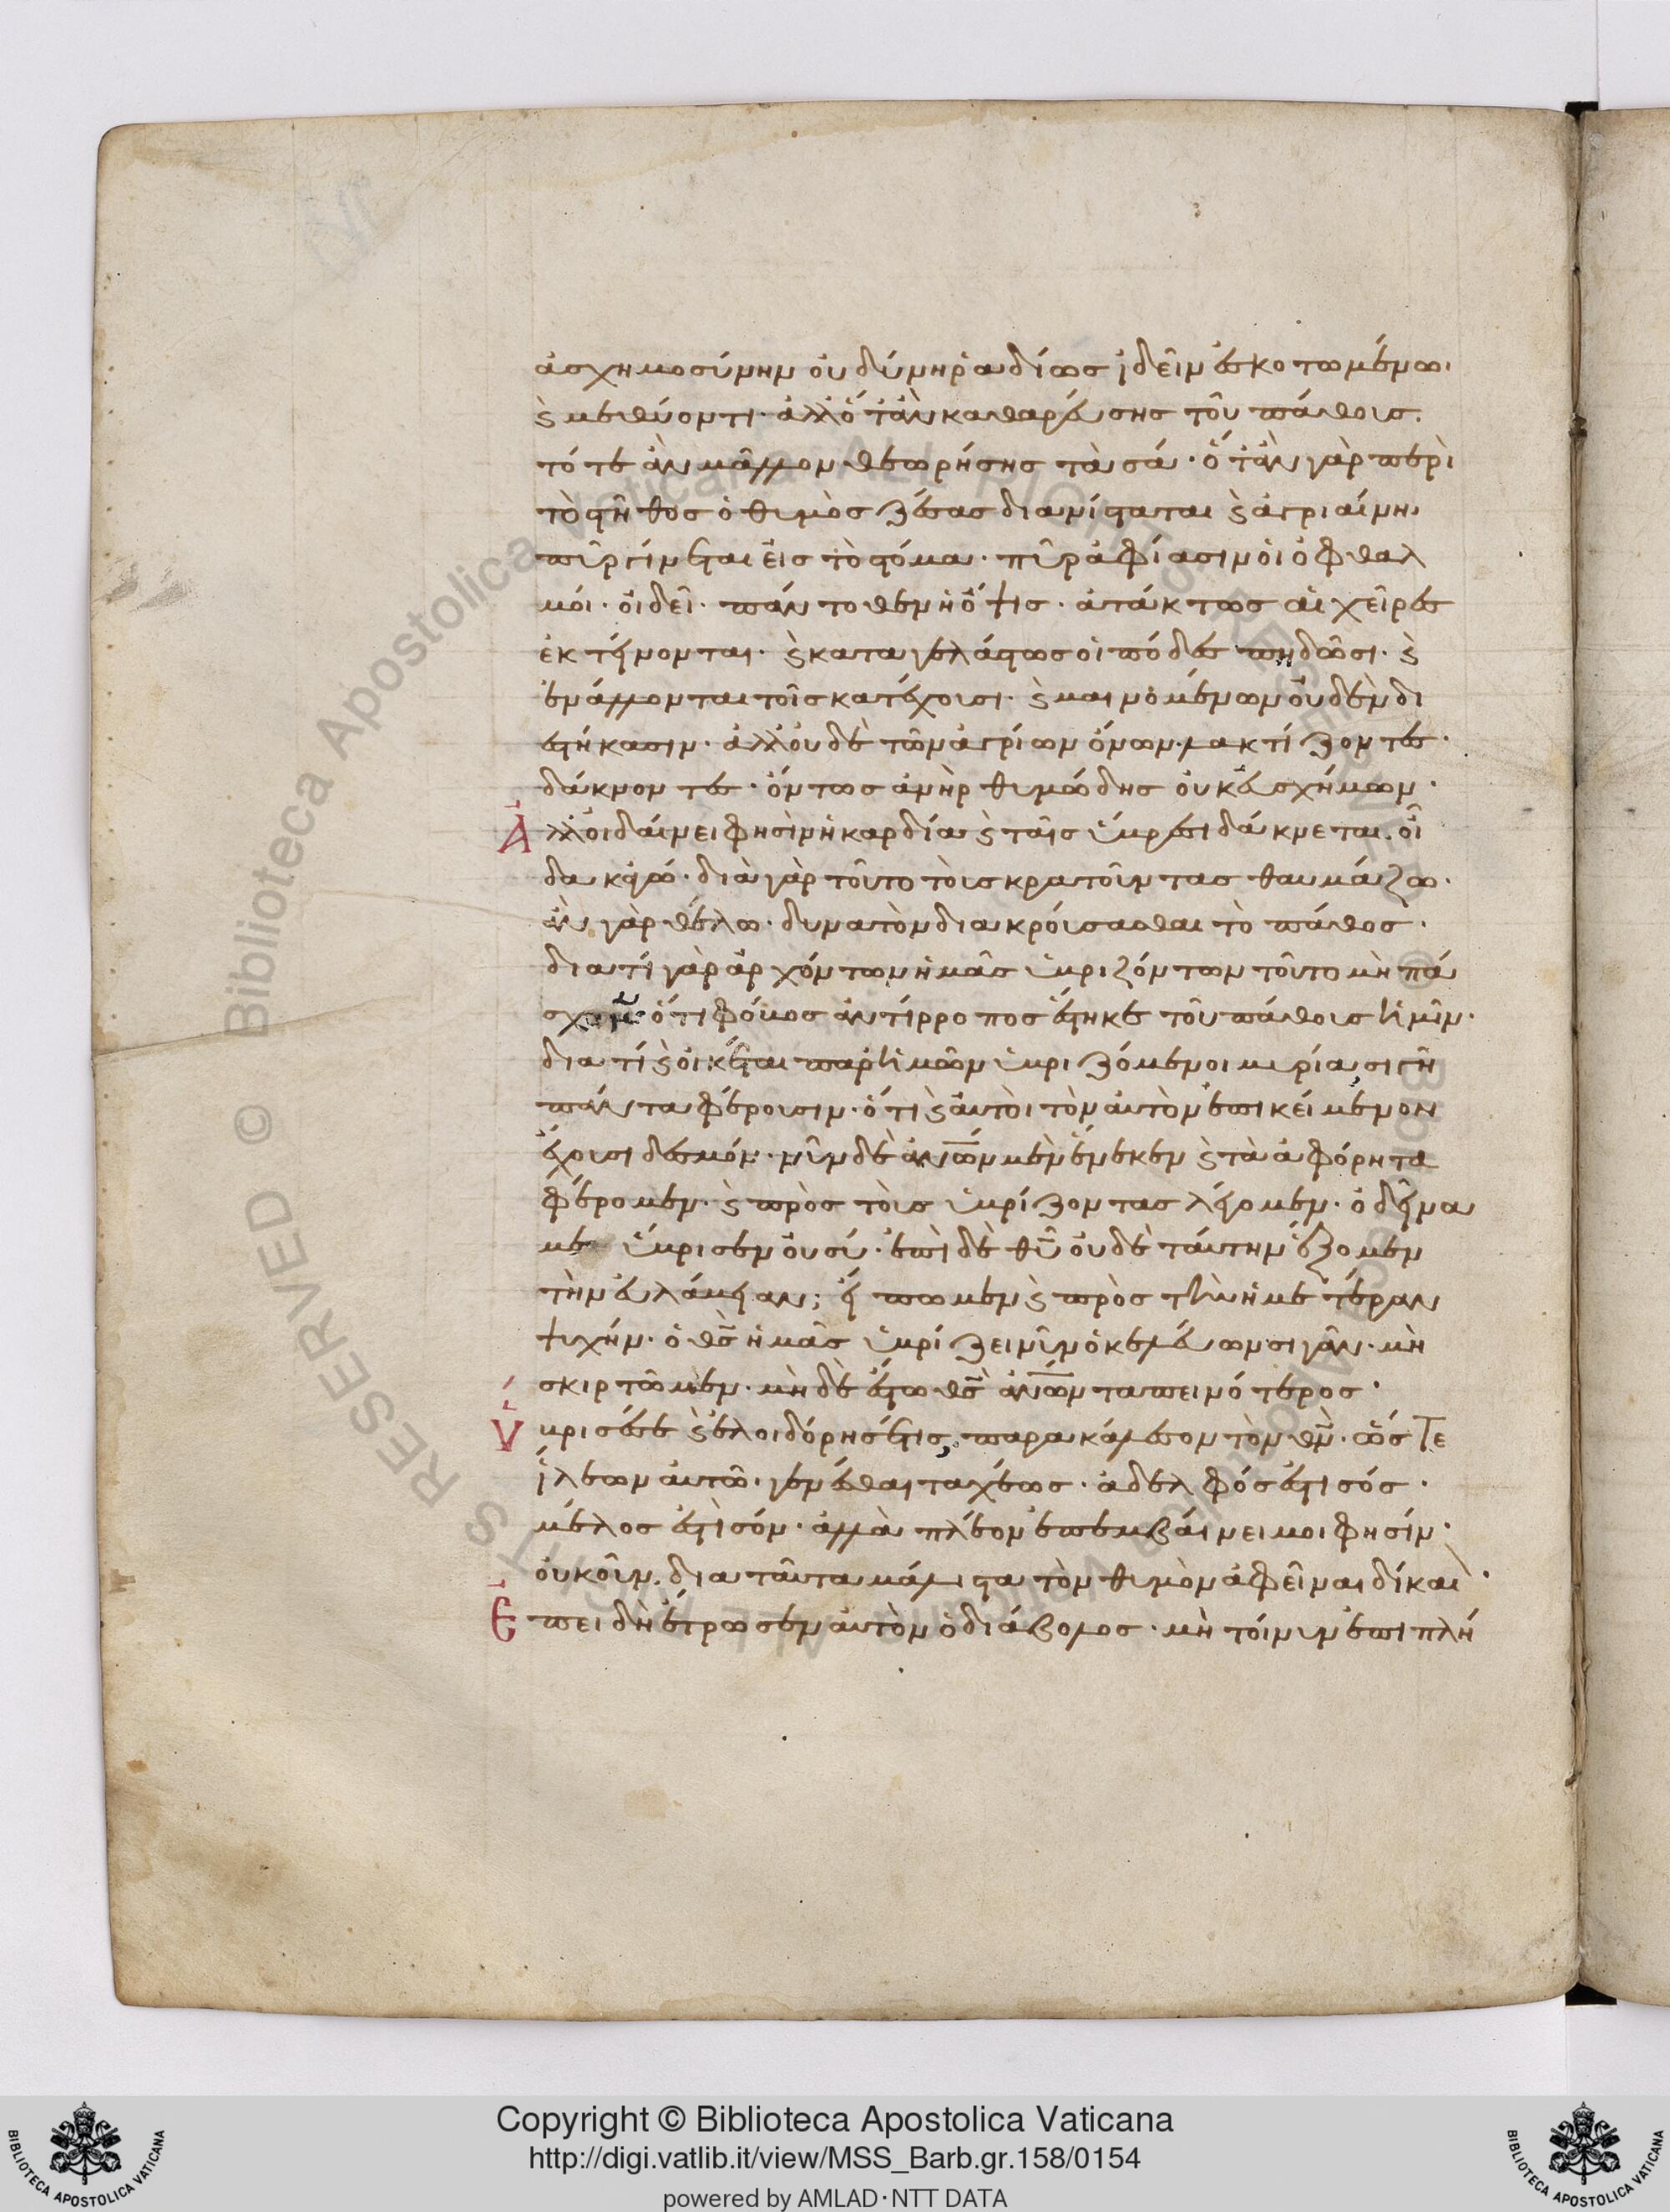 ἀσχημοσύνην οὐ δύνη ῥαδίως ἰδεῖν ἐσκοτωμένω.
ϗ μεθύοντι· ἀλλ' ὅτ' ἂν καθαρεύσης τοῦ πάθους.
τότε ἂν μᾶλλον θεωρήσης τὰ σά· ὅτ' ἂν γὰρ περὶ
τὸ στῆθος ὁ θυμὸς ζέσας διανίσταται ϗ ἀγριαίνη.
πῦρ γίνεται εἰς τὸ στόμα· πῦρ ἀφίασιν οἱ ὀφθαλ
μοί· οἰδεῖ· πάντοθεν ἡ ὄψις· ἀτάκτως αἱ χεῖρες
ἐκτείνονται· ϗ καταγελάστως οἱ πόδες πηδῶσι· ϗ
ἐνάλλονται τοῖς κατέχουσι· ϗ μαινομένων οὐδὲν δι
εστήκασιν· ἀλλ' οὐδὲ τῶν ἀγρίων ὄνων· λακτίζοντες·
δάκνοντες· ὄντως ἀνὴρ θυμώδης οὐκ εὐσχήμων·
Ἀλλ' οἰδαίνει φησὶν ἡ καρδία ϗ ταῖς ὕβρεσι δάκνεται. οἶ
δα κἀγώ· διὰ γὰρ τοῦτο τοὺς κρατοῦντας θαυμάζω·
ἂν γὰρ θέλω· δυνατὸν διακρούσασθαι τὸ πάθος·
διατί γὰρ ἀρχόντων ἡμᾶς ὑβριζόντων τοῦτο μὴ πά
σχομεν ὅτι φόβος ἀντίρροπος ἕστηκε τοῦ πάθους ἡμῖν·
διατί ϗ οἰκέται παρ' ἡμῶν ὑβριζόμενοι μυρία, σιγῆ
πάντα φέρουσιν· ὅτι ϗ αὐτοὶ τὸν αὐτὸν ἐπικείμενον
ἔχουσι δεσμόν· νῦν δὲ ἀνων μὲν ἕνεκεν ϗ τὰ ἀφόρητα
φέρομεν· ϗ πρὸς τοὺς ὑβρίζοντας λέγομεν· ὁ δεῖνα
με ὕβρισεν οὐ σύ· ἐπὶ δὲ θυ οὐδὲ ταύτην ἔχομεν
τὴν εὐλάβειαν; εἴπωμεν ϗ πρὸς τὴν ἡμετέραν
ψυχήν· ὁ θς ἡμᾶς ὑβρίζει νῦν ὁ κελεύων σιγᾶν· μὴ
σκιρτῶμεν· μὴ δὲ ἔστω θς ἀνων ταπεινότερος·
Ὕβρισέ σε ϗ ἐλοιδόρησέ τις, παρακάλεσον τὸν θν· ὥστε
ἵλεων αὐτῶ· γενέσθαι ταχέως· ἀδελφός ἐστι σός·
μέλος ἐστὶ σόν· ἀλλὰ πλέον ἐπεμβαίνει μοι φησίν·
οὐκοῦν. δια ταῦτα μάλιστα τὸν θυμὸν ἀφεῖναι δίκαι·
Ἐπειδὴ ἔτρωσεν αὐτὸν ὁ διάβολος· μὴ τοίνυν ἐπιπλή
Copyright © Biblioteca Apostolica Vaticana
http://digi.vatlib.it/view/MSS_Barb.gr.158/0154
powered by AMLAD·NTT DATA